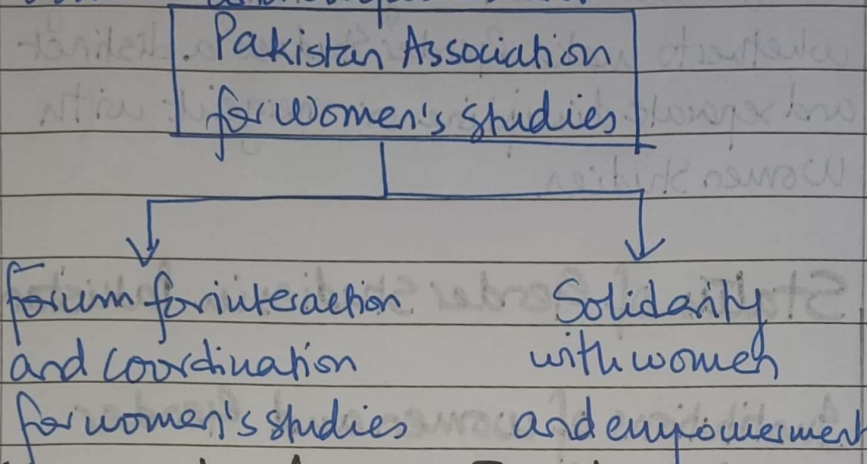 Pakistan Association
for Women's Studies
Forum for interaction
and coordination
for women's studies
Solidarity
with women
and empowerment